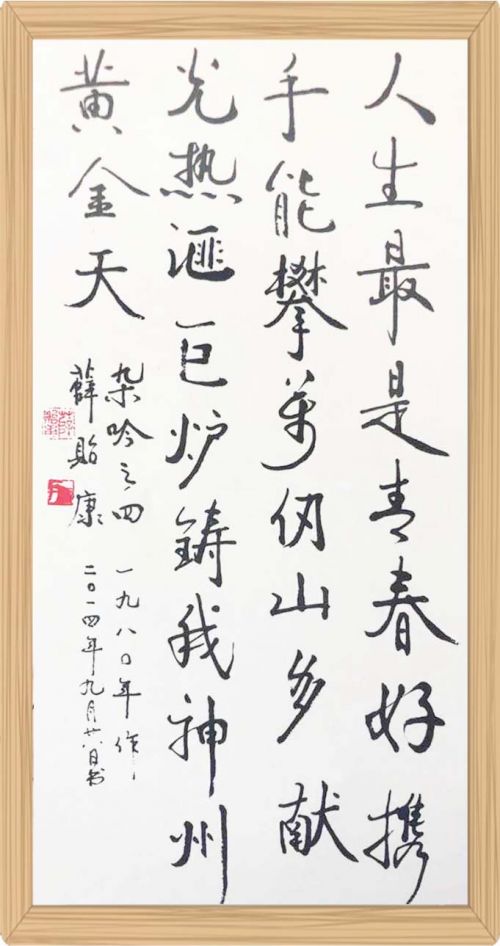 人生最是青春好携
手能攀萬仞山多献
光热滙巨炉铸我神州
黄金天
杂吟之四 一九八〇年作
薛贻康 二〇一四年九月廿八日书